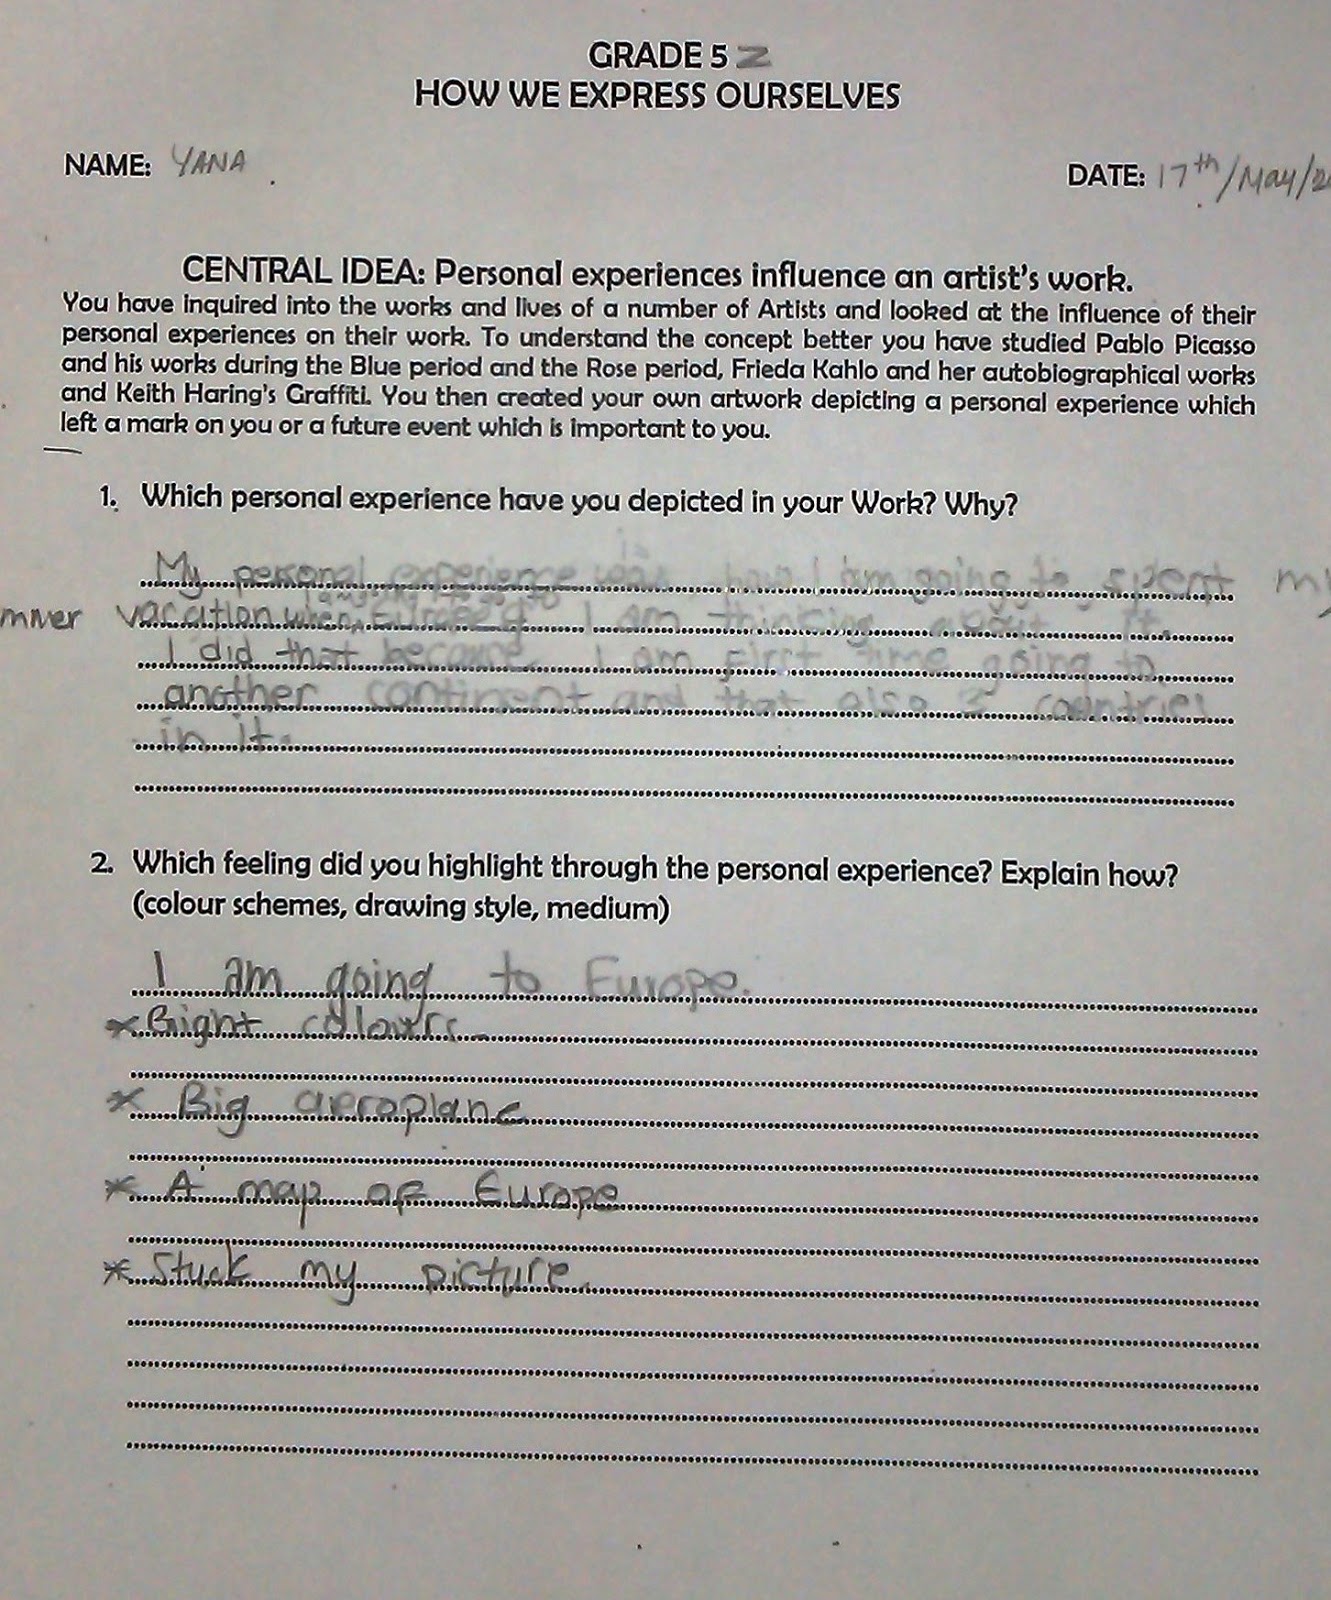 GRADE 5 Z
HOW WE EXPRESS OURSELVES
NAME: YANA
DATE: 17th/May/2
CENTRAL IDEA: Personal experiences influence an artist's work.
You have inquired into the works and lives of a number of Artists and looked at the influence of their
personal experiences on their work. To understand the concept better you have studied Pablo Picasso
and his works during the Blue period and the Rose period, Frieda Kahlo and her autobiographical works
and Keith Haring's Graffiti. You then created your own artwork depicting a personal experience which
left a mark on you or a future event which is important to you.
1. Which personal experience have you depicted in your Work? Why?
is
My personal experience how I am going to spent my
vacation when I am thinking about it.
I did that because I am first time going to
another continent and that also 3 countries
in it.
2. Which feeling did you highlight through the personal experience? Explain how?
(colour schemes, drawing style, medium)
I am going to Europe.
* Bright colours
* Big aeroplane
* A map of Europe
* Stuck my picture.